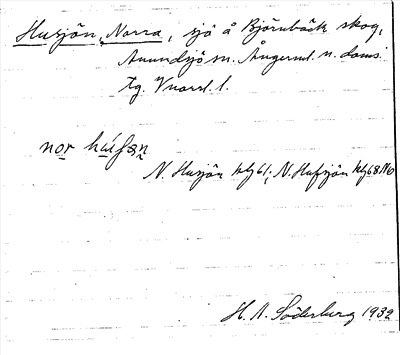 Husjön, Norra, sjö å Björnbäck skog,
Anundsjö sn. Ångerml. n. doms.
tg. Vnorrl. l.
nor húſən
N. Husjön klj 61; N. Hufsjön klj 68 No
H. A. Söderberg 1932